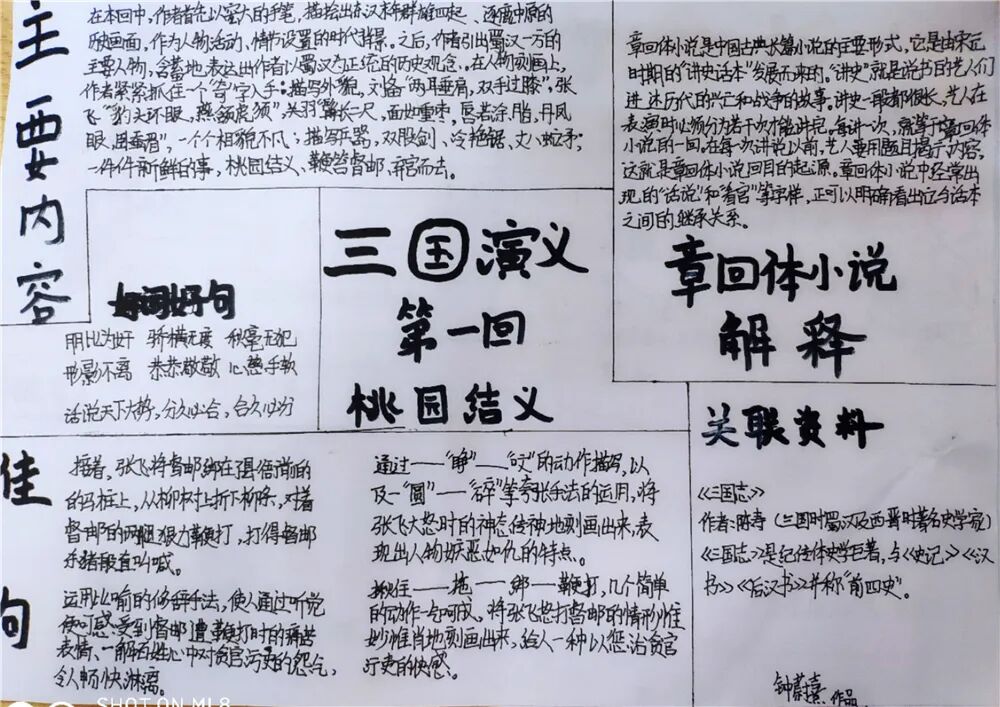 主要内容
在本回中，作者首先以宏大的手笔，描绘出东汉末年群雄四起、逐鹿中原的
历史画面，作为人物活动、情节设置的时代背景。之后，作者引出蜀汉一方的
主要人物，含蓄地表达出作者以蜀汉为正统的历史观念。在人物刻画上，
作者紧紧抓住一个"奇"字入手：描写外貌，刘备"两耳垂肩，双手过膝"，张
飞"豹头环眼，燕颔虎须"关羽"髯长二尺，面如重枣，唇若涂脂，丹凤
眼，卧蚕眉"，一个个相貌不凡；描写兵器，双股剑、冷艳锯、丈八蛇矛；
一件件新鲜的事，桃园结义、鞭笞督邮、弃官而去。
章回体小说是中国古典长篇小说的主要形式，它是由宋元
时期的"讲史话本"发展而来的。"讲史"就是说书的艺人们
讲述历代的兴亡和战争的故事。讲史一般都很长，艺人在
表演时必须分为若干次才能讲完。每讲一次，就等于章回体
小说的一回。在每次讲说以前，艺人要用题目揭示内容，
这就是章回体小说回目的起源。章回体小说中经常出
现的"话说"和"看官"等字样，正可以明确看出它与话本
之间的继承关系。
章回体小说
解释
好词好句
朋比为奸 骄横无度 秋毫无犯
形影不离 恭恭敬敬 心慈手软
话说天下大势，分久必合，合久必分
三国演义
第一回
桃园结义
佳句
接着，张飞将督邮绑在县衙前的
的马桩上，从柳树上折下柳条，对着
督邮的两腿狠力鞭打，打得督邮
杀猪般直叫喊。
运用比喻的修辞手法，使人通过听觉
便可感受到督邮遭鞭打时的痛苦
表情、一解百姓心中对贪官污吏的怨气，
令人畅快淋漓。
通过——"睁"——"咬"的动作描写，以
及—"圆"——"碎"等夸张手法的运用，将
张飞大怒时的神态传神地刻画出来，表
现出人物嫉恶如仇的特点。
揪住——拖——绑——鞭打，几个简单
的动作一气呵成。将张飞怒打督邮的情形惟
妙惟肖地刻画出来，给人一种以惩治贪官
污吏的快感。
关联资料
《三国志》
作者：陈寿（三国时蜀汉及西晋时著名史学家）
《三国志》是纪传体史学巨著，与《史记》《汉
书》《后汉书》并称"前四史"。
作品
SHOT ON MI 8